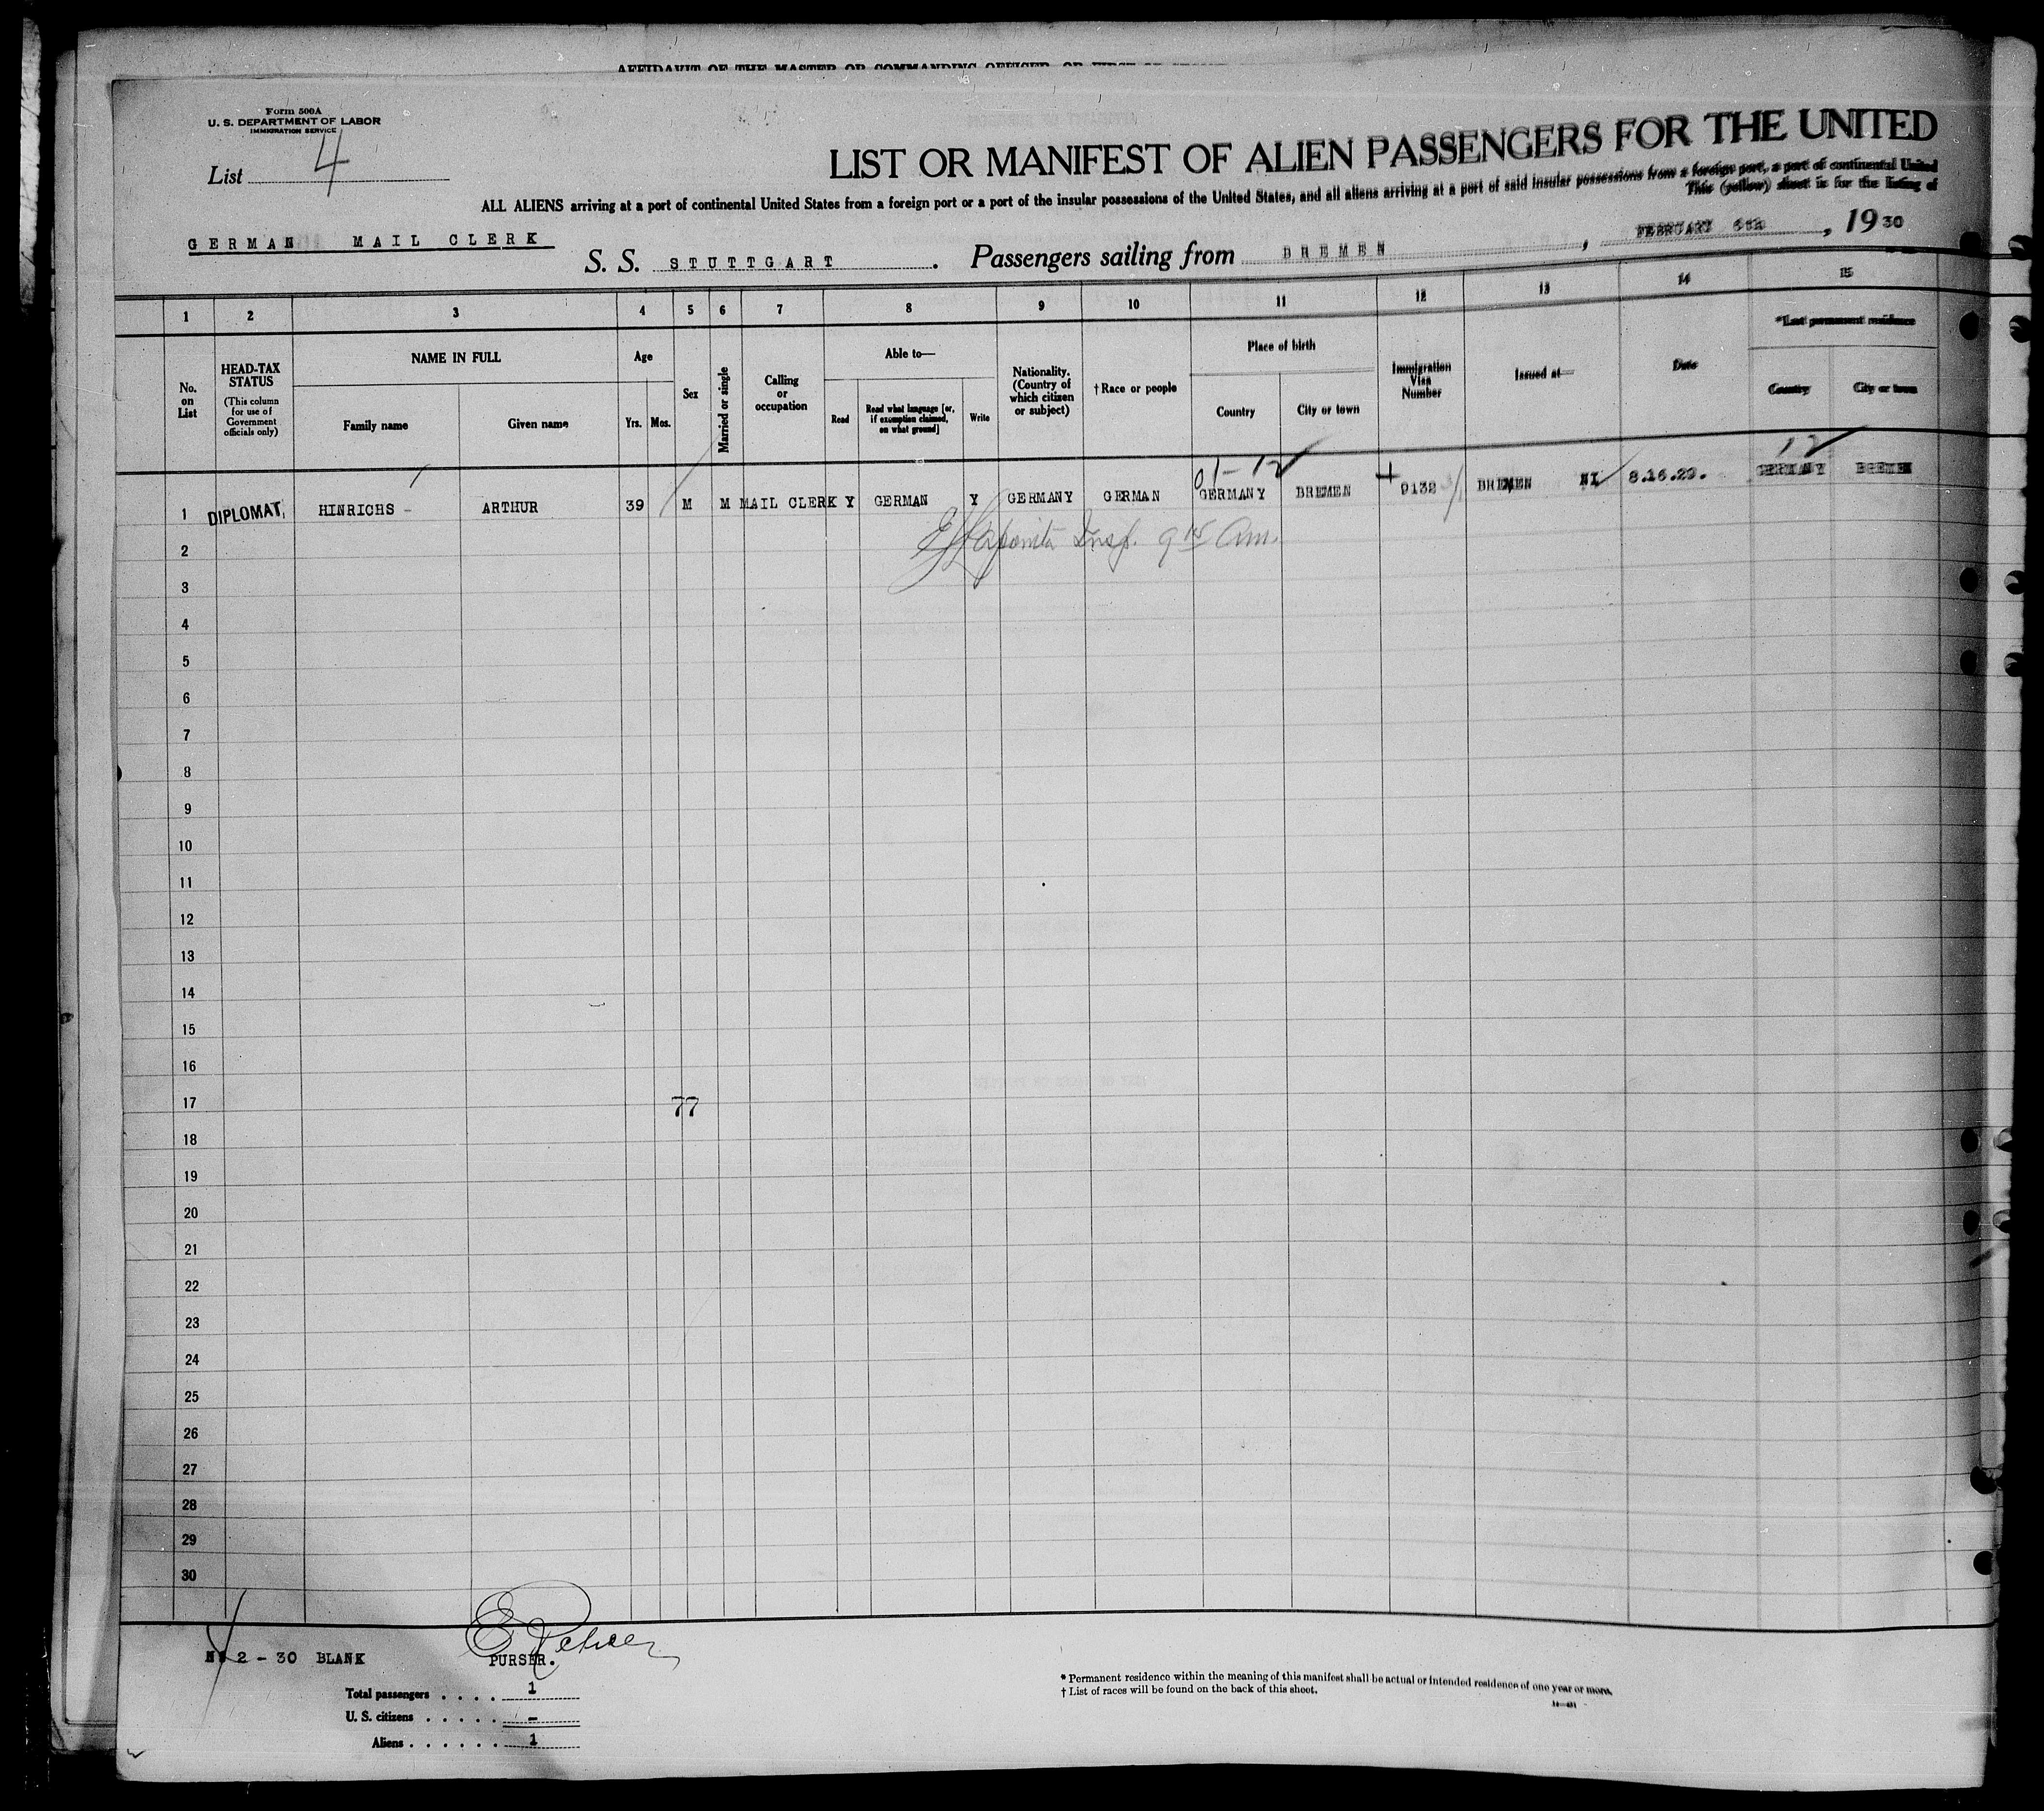 Form 500A
U. S. DEPARTMENT OF LABOR
IMMIGRATION SERVICE
List 4
LIST OR MANIFEST OF ALIEN PASSENGERS FOR THE UNITED
ALL ALIENS arriving at a port of continental United States from a foreign port or a port of the insular possessions of the United States, and all aliens arriving at a port of said insular possessions from a foreign port, a port of continental United
This (yellow) sheet is for the listing of
GERMAN MAIL CLERK
S. S. STUTTGART. Passengers sailing from BREMEN, FEBRUARY 6th, 1930
1 2 3 4 5 6 7 8 9 10 11 12 13 14 15
No. on List
HEAD-TAX STATUS (This column for use of Government officials only)
NAME IN FULL
Family name Given name
Age
Yrs. Mos.
Sex
Married or single
Calling or occupation
Able to—
Read
Read what language [or, if exemption claimed, on what ground]
Write
Nationality. (Country of which citizen or subject)
† Race or people
Place of birth
Country City or town
Immigration Visa Number
Issued at—
Date
*Last permanent residence
Country City or town
01-12 12
1 DIPLOMAT, HINRICHS - ARTHUR 39 M M MAIL CLERK Y GERMAN Y GERMANY GERMAN GERMANY BREMEN 9132 BREMEN NI 8.16.29. GERMANY BREMEN
Insp. 9 15 Am.
2
3
4
5
6
7
8
9
10
11
12
13
14
15
16
17 77
18
19
20
21
22
23
24
25
26
27
28
29
30
2 - 30 BLANK
PURSER.
Total passengers .... 1
U. S. citizens ..... -
Aliens ...... 1
* Permanent residence within the meaning of this manifest shall be actual or intended residence of one year or more.
† List of races will be found on the back of this sheet.